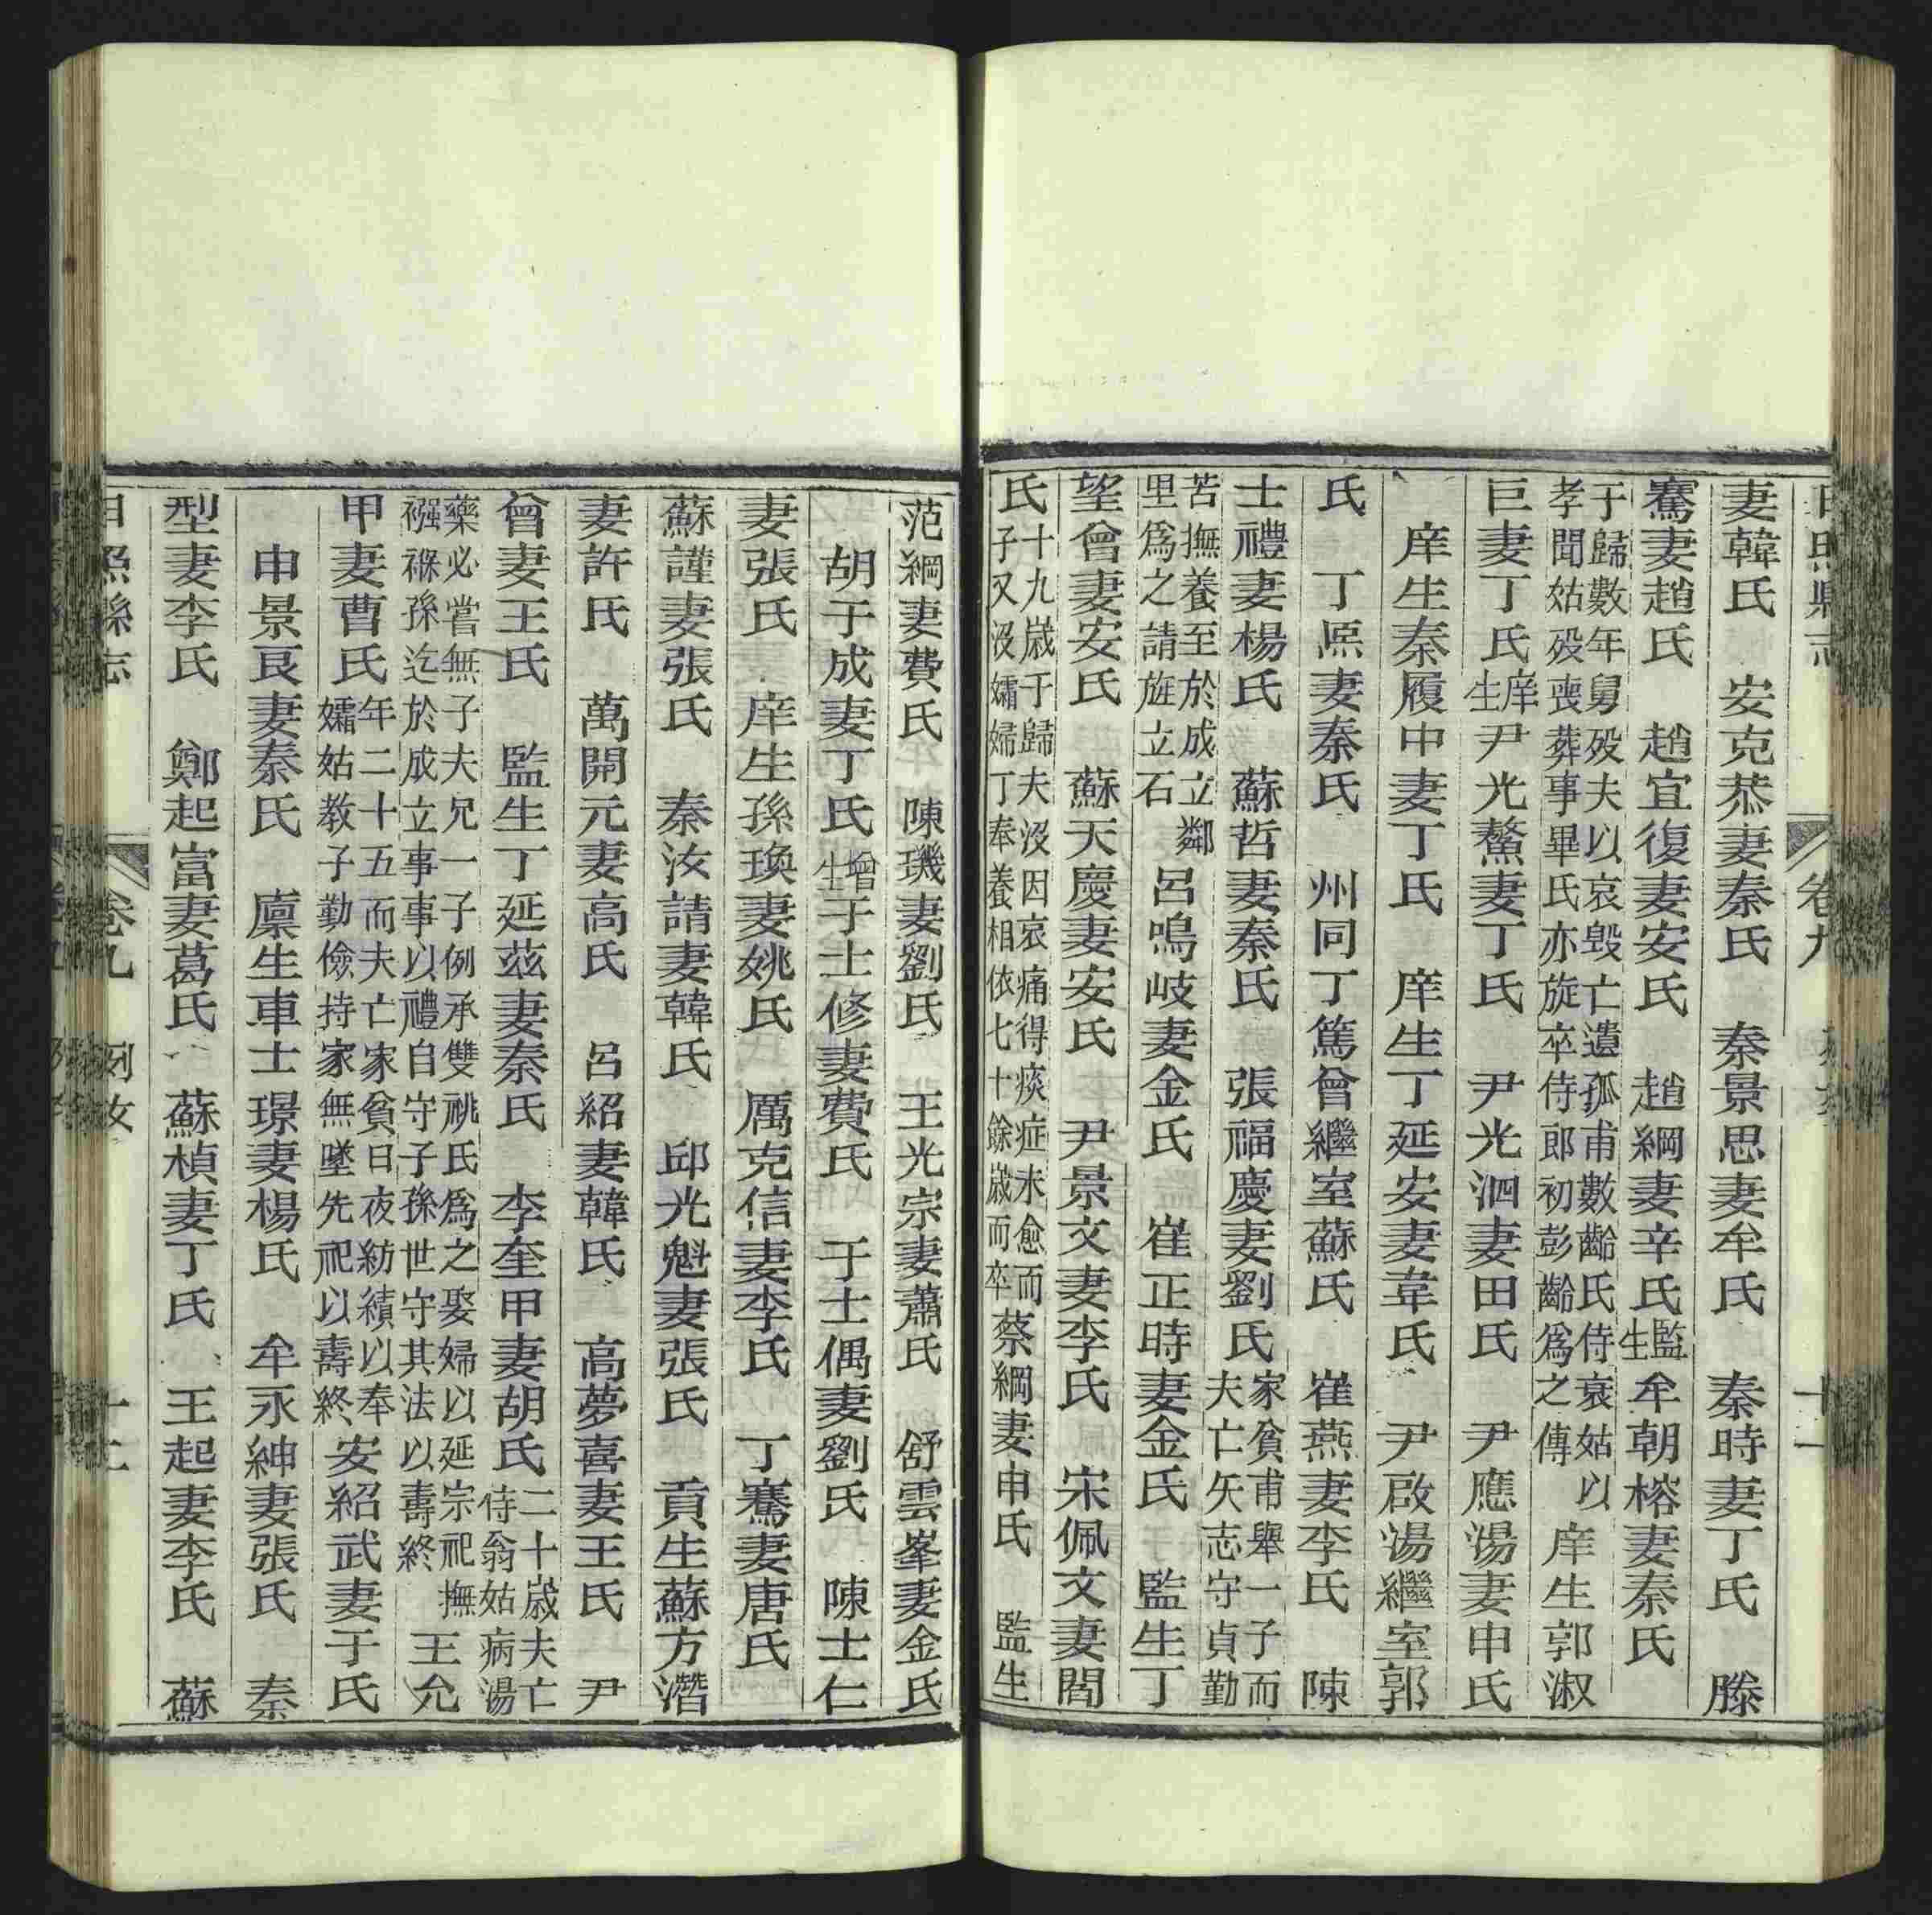 妻韓氏　安克恭妻秦氏　秦景思妻牟氏　秦時妻丁氏　滕
騫妻趙氏　趙宜復妻安氏　趙綱妻辛氏監生牟朝榕妻秦氏
于歸數年舅歿夫以哀毀亡遺孤甫數齡氏侍衰姑以
孝聞姑歿喪葬事畢氏亦旋卒侍郎初彭齡爲之傳
庠生郭淑
巨妻丁氏庠生尹光鰲妻丁氏　尹光泗妻田氏　尹應湯妻申氏
庠生秦履中妻丁氏　庠生丁延安妻韋氏　尹啟湯繼室郭
氏　丁熙妻秦氏　州同丁篤曾繼室蘇氏　崔燕妻李氏　陳
士禮妻楊氏　蘇哲妻秦氏　張福慶妻劉氏
家貧甫舉一子而
夫亡矢志守貞勤
苦撫養至於成立鄰
里爲之請旌立石
呂鳴岐妻金氏　崔正時妻金氏　監生丁
望曾妻安氏　蘇天慶妻安氏　尹景文妻李氏　宋佩文妻閻
氏
十九歲于歸夫沒因哀痛得痰症未愈而
子又沒孀婦丁奉養相依七十餘歲而卒
蔡綱妻申氏　監生
范綱妻費氏　陳璣妻劉氏　王光宗妻蕭氏　舒雲峯妻金氏
胡于成妻丁氏增生于士修妻費氏　于士偶妻劉氏　陳士仁
妻張氏　庠生孫瑍妻姚氏　厲克信妻李氏　丁騫妻唐氏
蘇謹妻張氏　秦汝請妻韓氏　邱光魁妻張氏　貢生蘇方濳
妻許氏　萬開元妻高氏　呂紹妻韓氏　高夢喜妻王氏　尹
曾妻王氏　監生丁延茲妻秦氏　李奎甲妻胡氏
二十歲夫亡
侍翁姑病湯
藥必嘗無子夫兄一子例承雙祧氏爲之娶婦以延宗祀撫
襁褓孫迄於成立事事以禮自守子孫世守其法以壽終
王允
甲妻曹氏
年二十五而夫亡家貧日夜紡績以奉
孀姑教子勤儉持家無墜先祀以壽終
安紹武妻于氏
申景良妻秦氏　廩生車士璟妻楊氏　牟永紳妻張氏　秦
型妻李氏　鄭起富妻葛氏　蘇楨妻丁氏　王起妻李氏　蘇
日照縣志　卷九　列女　十二